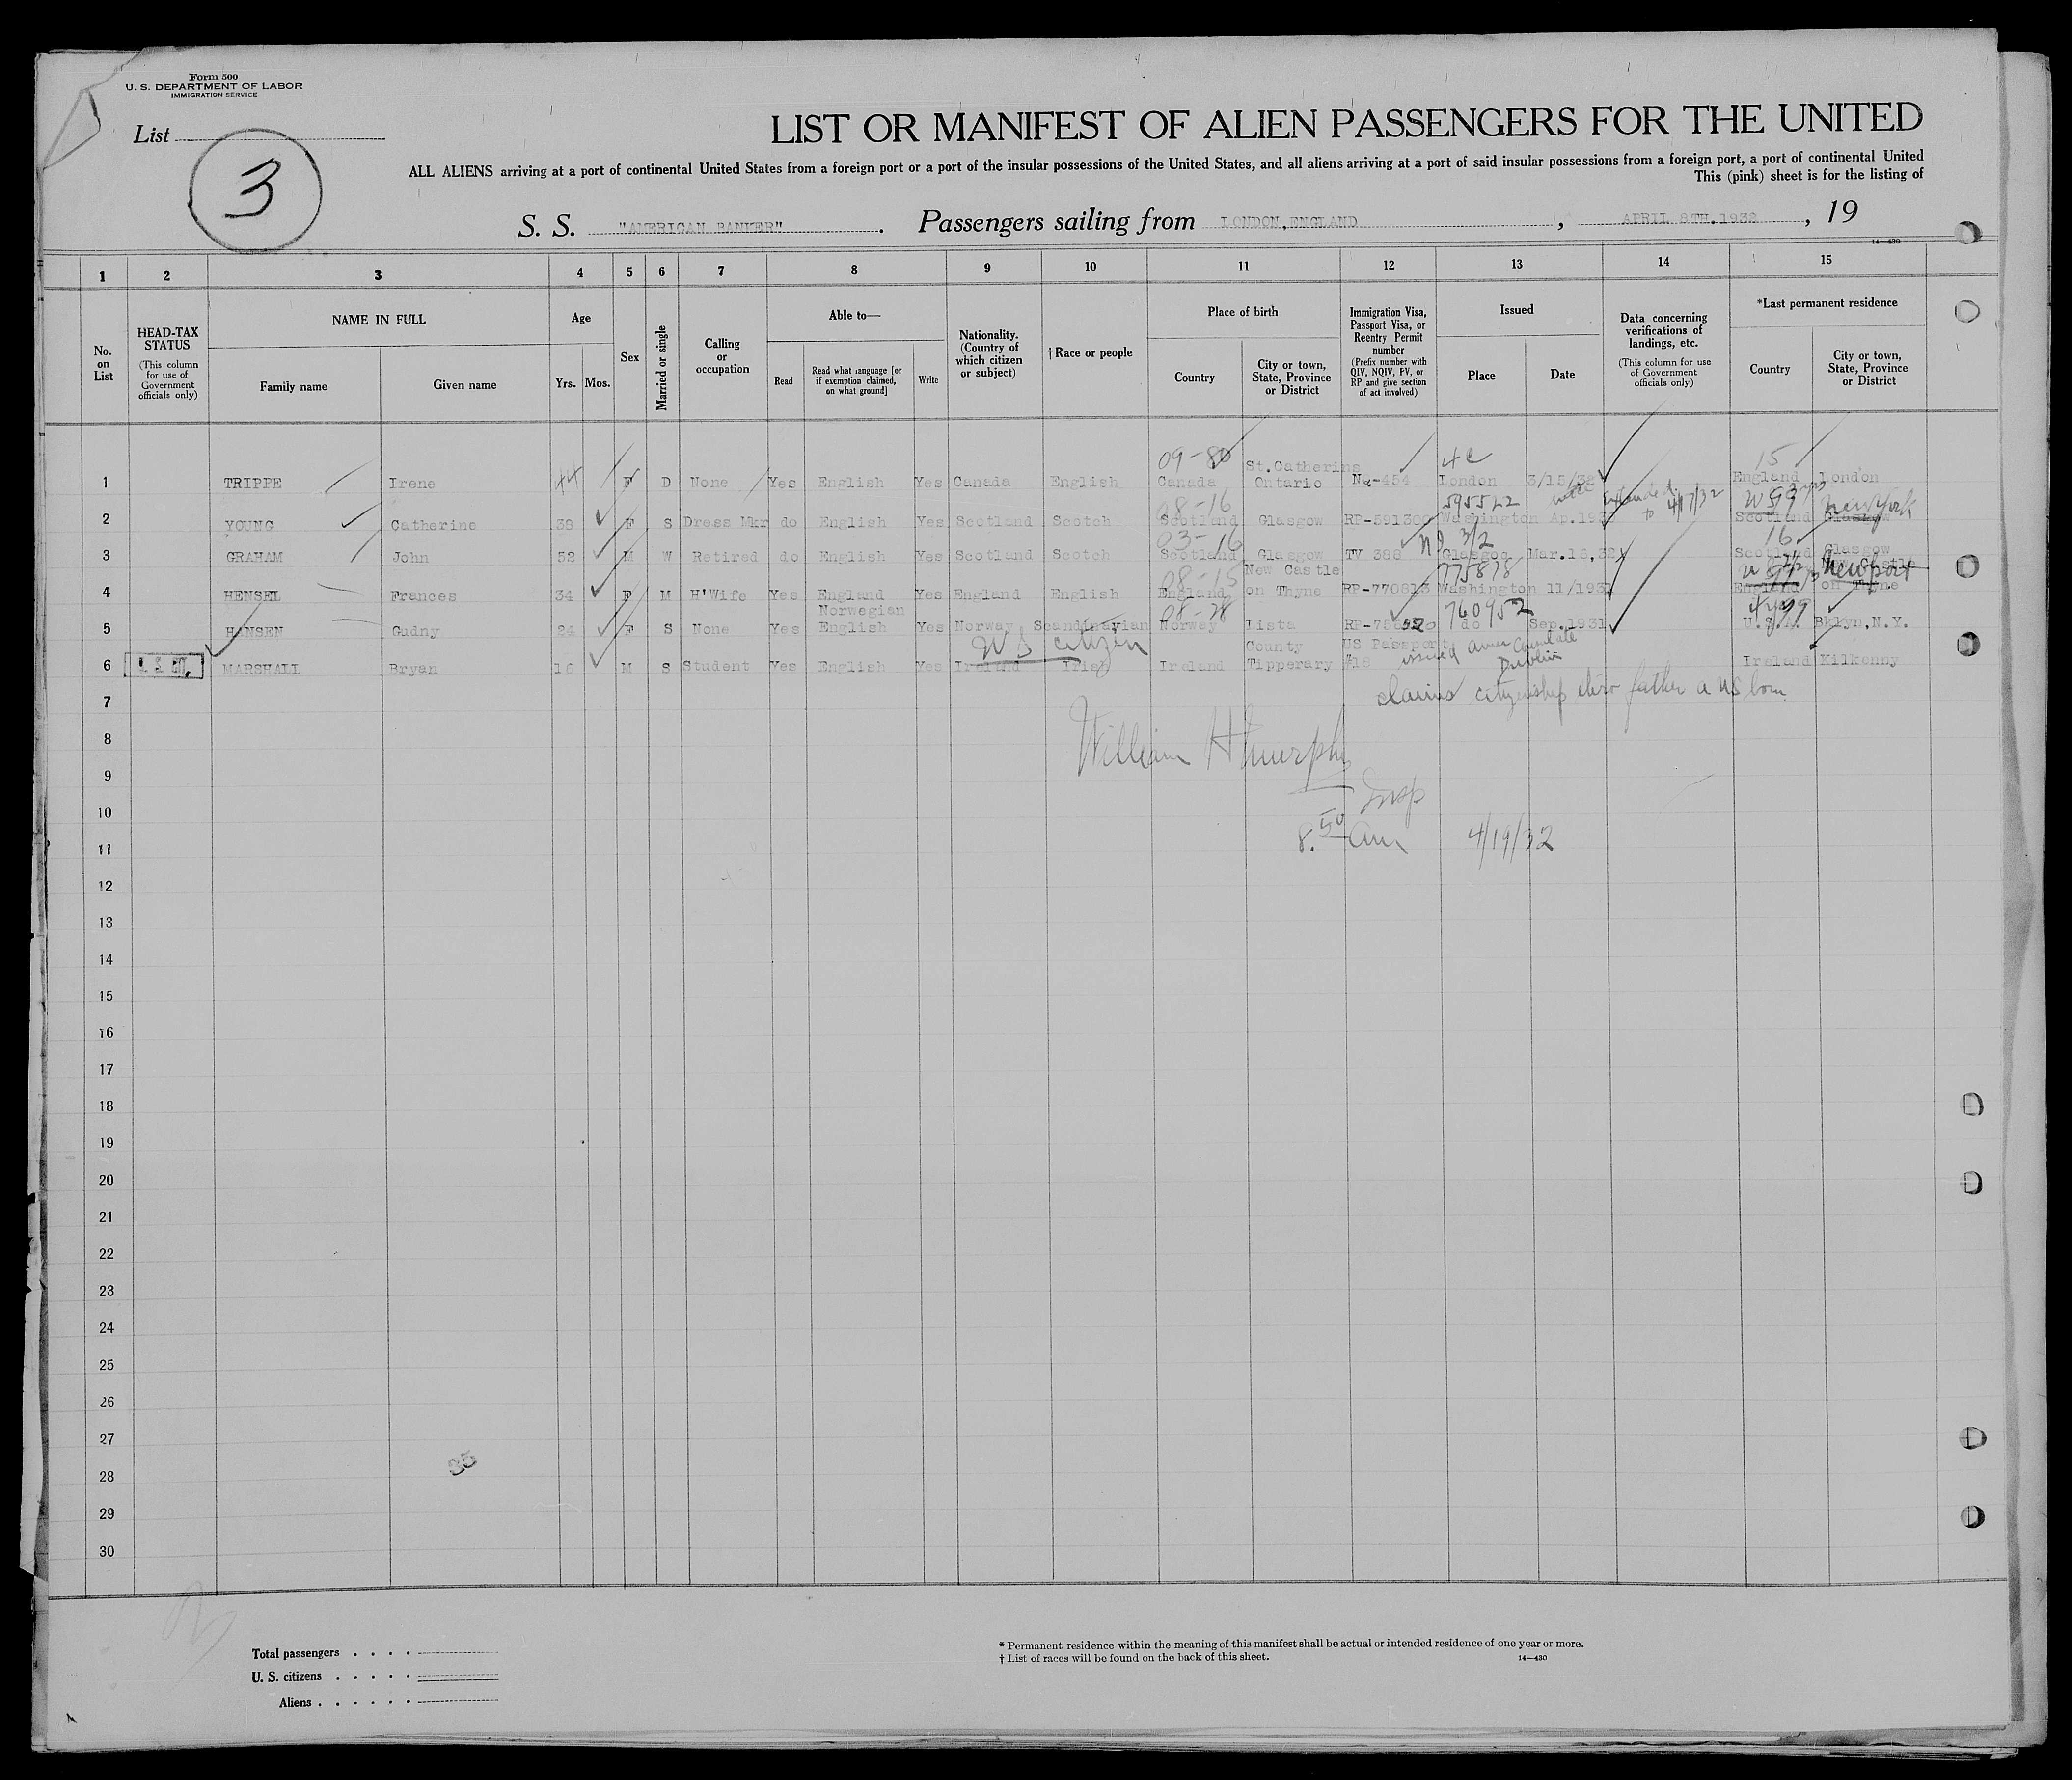 Form 500
U. S. DEPARTMENT OF LABOR
IMMIGRATION SERVICE
List
3
LIST OR MANIFEST OF ALIEN PASSENGERS FOR THE UNITED
ALL ALIENS arriving at a port of continental United States from a foreign port or a port of the insular possessions of the United States, and all aliens arriving at a port of said insular possessions from a foreign port, a port of continental United
This (pink) sheet is for the listing of
S. S. "AMERICAN BANKER". Passengers sailing from LONDON,ENGLAND, APRIL 8TH.1932, 19
14—430
1 2 3 4 5 6 7 8 9 10 11 12 13 14 15
No. on List
HEAD-TAX STATUS (This column for use of Government officials only)
NAME IN FULL
Family name
Given name
Age
Yrs. Mos.
Sex
Married or single
Calling or occupation
Able to—
Read
Read what language [or if exemption claimed, on what ground]
Write
Nationality. (Country of which citizen or subject)
†Race or people
Place of birth
Country
City or town, State, Province or District
Immigration Visa, Passport Visa, or Reentry Permit number (Prefix number with QIV, NQIV, PV, or RP and give section of act involved)
Issued
Place
Date
Data concerning verifications of landings, etc. (This column for use of Government officials only)
*Last permanent residence
Country
City or town, State, Province or District
09-80 4c 15
1 TRIPPE Irene 44 F D None Yes English Yes Canada English Canada St.Catherins Ontario -454 London 3/15/32 England London
08-16 595522 extended to 4/17/32 New York
2 YOUNG Catherine 38 F S Dress Mkr do English Yes Scotland Scotch Scotland Glasgow RP-591300 Washington Ap.193 Scotland Glasgow
03-16 3/2 16
3 GRAHAM John 52 M W Retired do English Yes Scotland Scotch Scotland Glasgow TV 388 Glasgoq Mar.15,32 Scotland Glasgow
08-15 775878 Newport
4 HENSEL Frances 34 F M H'Wife Yes England Yes England English England New Castle on Thyne RP-770813 Washington 11/1931 England New Castle on Thyne
08-28 760952
5 HANSEN Gudny 24 F S None Yes Norwegian English Yes Norway Scandinavian Norway Lista do Sep.1931 U.S.A. Bklyn,N.Y.
US citizen
6 MARSHALL Bryan 16 M S Student Yes English Yes Ireland Irish Ireland County Tipperary US Passport #18 issued Amer Consulate Dublin Ireland Kilkenny
7 claims citizenship thro father a US born
8 William H Murphy
9
Insp
10
8.50 am 4/19/32
11
12
13
14
15
16
17
18
19
20
21
22
23
24
25
26
27
35
28
29
30
Total passengers
U. S. citizens
Aliens
* Permanent residence within the meaning of this manifest shall be actual or intended residence of one year or more.
† List of races will be found on the back of this sheet.
14—430